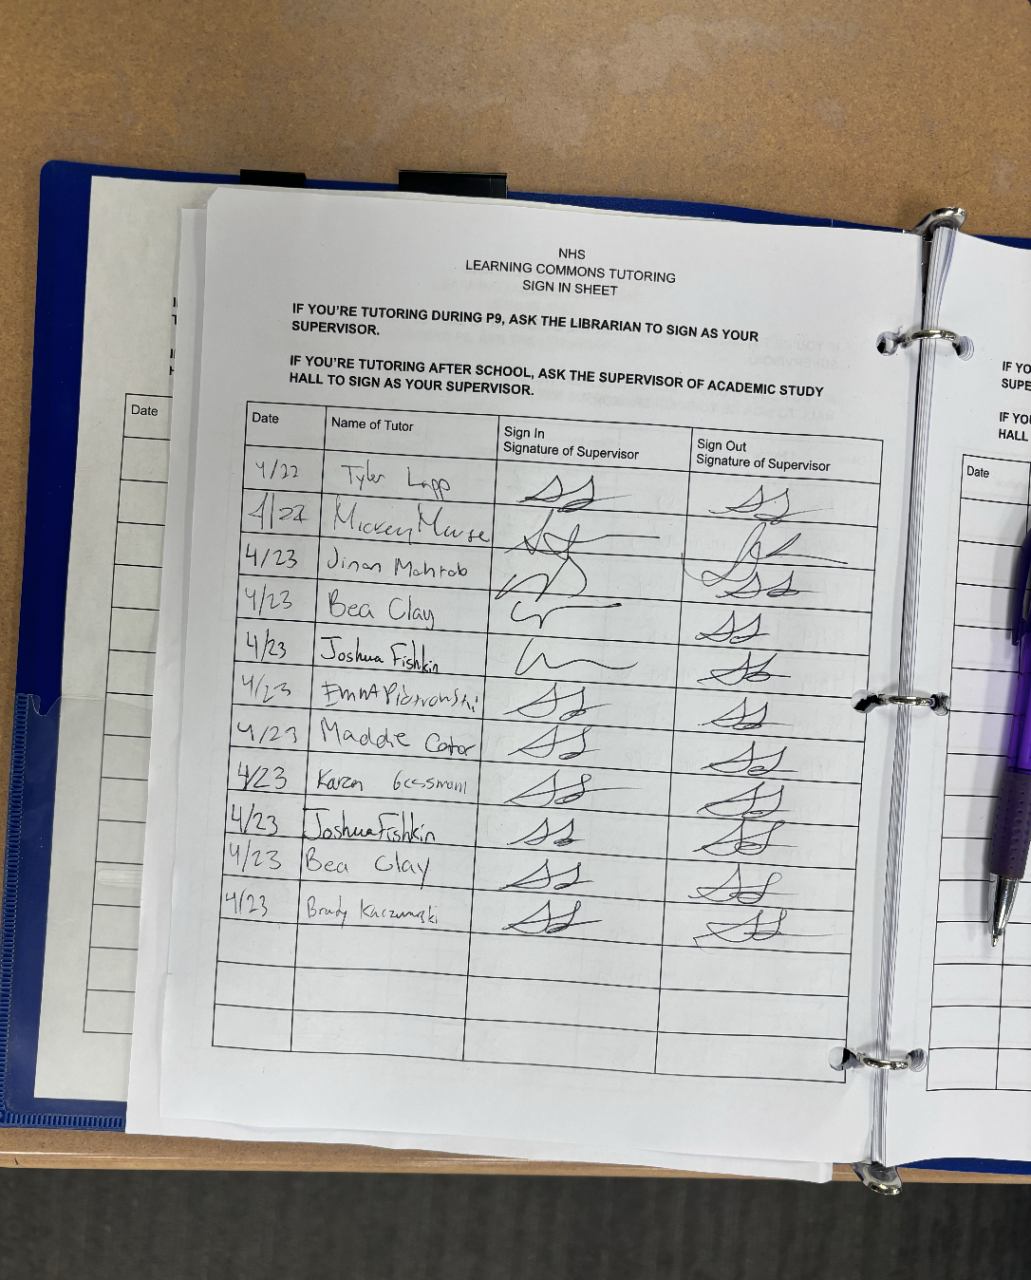 NHS
LEARNING COMMONS TUTORING
SIGN IN SHEET
IF YOU'RE TUTORING DURING P9, ASK THE LIBRARIAN TO SIGN AS YOUR
SUPERVISOR.
IF YOU'RE TUTORING AFTER SCHOOL, ASK THE SUPERVISOR OF ACADEMIC STUDY
HALL TO SIGN AS YOUR SUPERVISOR.
Date Name of Tutor Sign In Signature of Supervisor Sign Out Signature of Supervisor
4/22 Tyler Lapp
4/22 Mickey Mouse
4/23 Jinan Mahtab
4/23 Bea Clay
4/23 Joshua Fishkin
4/23 Emma Piotrowski
4/23 Maddie
4/23 Karen
4/23 Joshua Fishkin
4/23 Bea Clay
4/23 Brady Kaczmarski
Date
IF YO
SUPE
IF YOU
HALL
Date